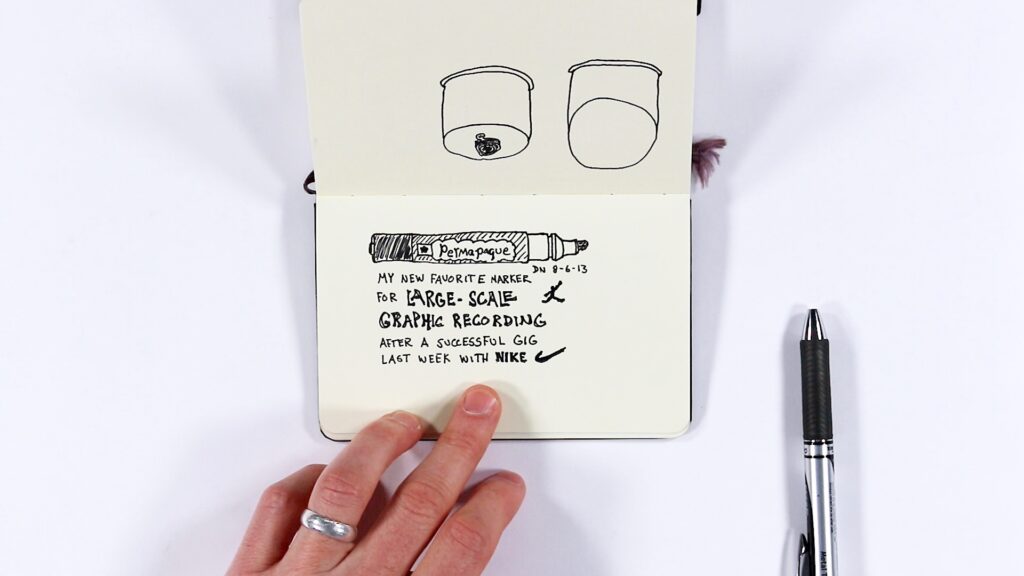 Permapaque
DN 8-6-13
MY NEW FAVORITE MARKER
FOR LARGE-SCALE
GRAPHIC RECORDING
AFTER A SUCCESSFUL GIG
LAST WEEK WITH NIKE